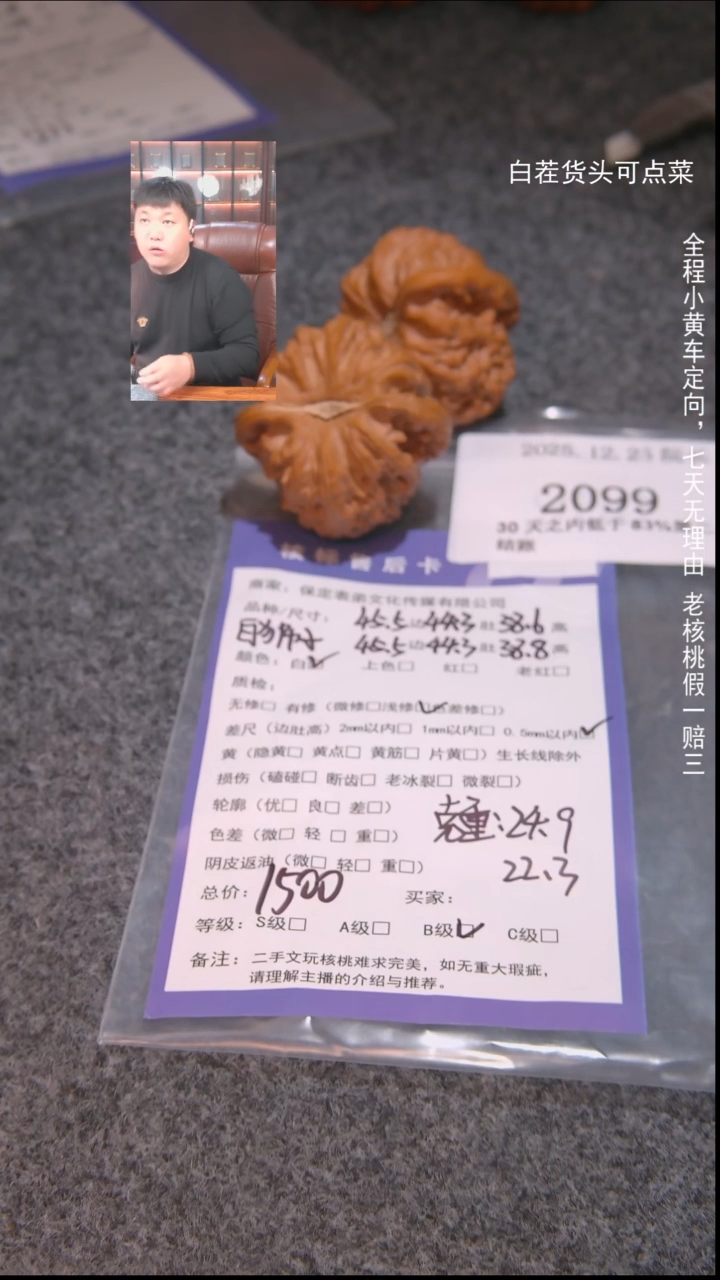 白茬货头可点菜
全程小黄车定向，七天无理由 老核桃假一赔三
2025.12.23
2099
30 天之内低于 83%
售后卡
品种/尺寸： 45.5边44.3肚38.6高
45.5边44.3肚38.8高
颜色：白☑ 上色□ 红□ 老红□
质检：
无修□ 有修（微修□浅修☑差修□）
差尺（边肚高）2mm以内□ 1mm以内□ 0.5mm以内☑
黄（隐黄□ 黄点□ 黄筋□ 片黄□）生长线除外
损伤（磕碰□ 断齿□ 老冰裂□ 微裂□）
轮廓（优□ 良□ 差□）
克重：24.9
色差（微□ 轻□ 重□）
22.3
阴皮返油（微□ 轻□ 重□）
总价：1500 买家：
等级：S级□ A级□ B级☑ C级□
备注：二手文玩核桃难求完美，如无重大瑕疵，
请理解主播的介绍与推荐。